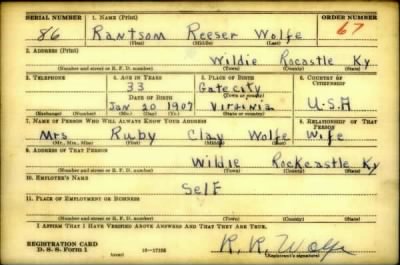 SERIAL NUMBER 1. NAME (Print) ORDER NUMBER
86 Rantsom Reeser Wolfe 67
(First) (Middle) (Last)
2. ADDRESS (Print)
Wildie Rocastle Ky
(Number and street or R. F. D. number) (Town) (County) (State)
3. TELEPHONE 4. AGE IN YEARS 5. PLACE OF BIRTH 6. COUNTRY OF CITIZENSHIP
33 Gate city
DATE OF BIRTH (Town or county)
Jan 20 1907 Virginia U-S-A
(Exchange) (Number) (Mo.) (Day) (Yr.) (State or country)
7. NAME OF PERSON WHO WILL ALWAYS KNOW YOUR ADDRESS 8. RELATIONSHIP OF THAT PERSON
Mrs Ruby Clay Wolfe Wife
(Mr., Mrs., Miss) (First) (Middle) (Last)
9. ADDRESS OF THAT PERSON
Wildie Rockcastle Ky
(Number and street or R. F. D. number) (Town) (County) (State)
10. EMPLOYER'S NAME
Self
11. PLACE OF EMPLOYMENT OR BUSINESS
(Number and street or R. F. D. number) (Town) (County) (State)
I AFFIRM THAT I HAVE VERIFIED ABOVE ANSWERS AND THAT THEY ARE TRUE.
REGISTRATION CARD
D. S. S. Form 1 (over) 16—17105 R. R. Wolfe
(Registrant's signature)